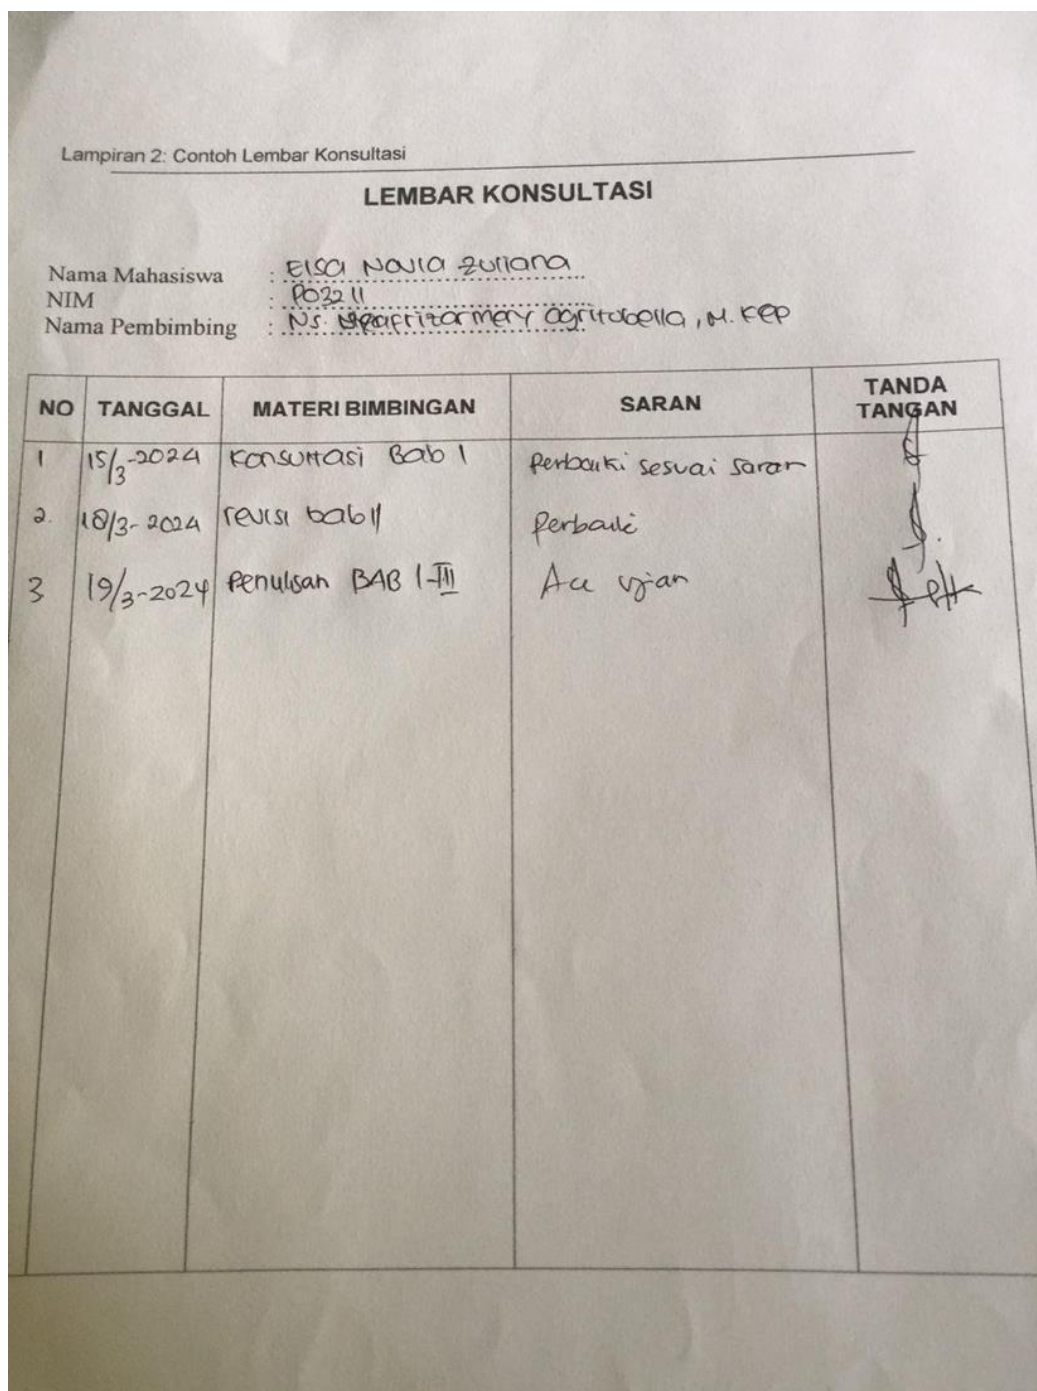 Lampiran 2: Contoh Lembar Konsultasi
LEMBAR KONSULTASI
Nama Mahasiswa : Elsa Novia Zuliana
NIM : P03211
Nama Pembimbing : Ns. mery agritubella, M. Kep
NO TANGGAL MATERI BIMBINGAN SARAN TANDA TANGAN
1 15/3-2024 Konsultasi Bab 1 Perbaiki sesuai saran
2. 18/3-2024 revisi bab 11 Perbaiki
3 19/3-2024 Penulisan BAB I-III Acc ujian